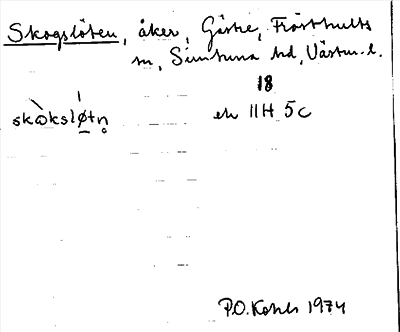 Skogslöten, åker, Gärstre, Frösthults
sn, Simtuna hd, Västm. l.
18
skòkslø̠tn̥ ek 11H 5c
P.O. Kohls 1974